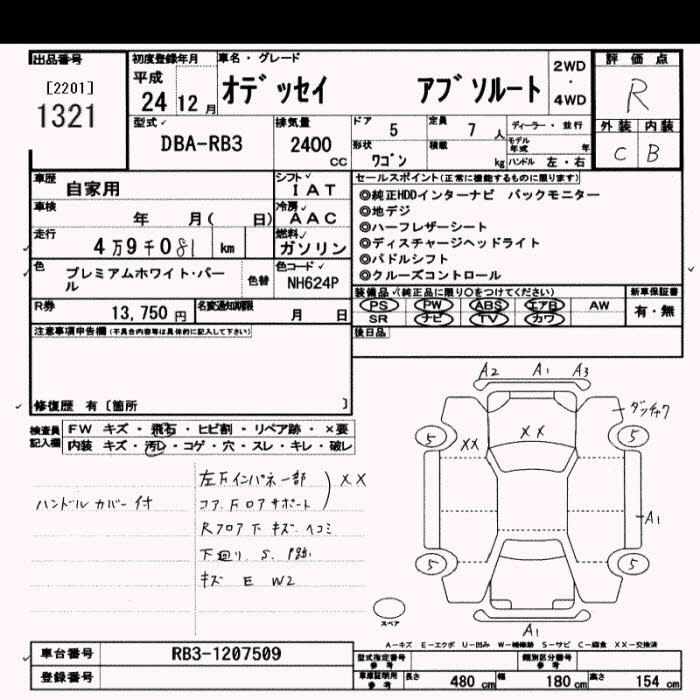 出品番号
[2201]
1321
初度登録年月
平成
24 12 月
車名・グレード
オデッセイ アブソルート
2WD
・
4WD
評価点
R
外装 内装
C B
型式
DBA-RB3
排気量
2400
CC
ドア 5
定員 7 人
ディーラー・並行
形状 ワゴン
積載 kg
モデル年式 年
ハンドル 左・右
車歴 自家用
シフト I A T
車検 年 月( 日)
冷房 A A C
走行 4万9千081 km
燃料 ガソリン
色 プレミアムホワイト・パール
色替
色コード NH624P
セールスポイント(正常に機能するものに限ります)
◎純正HDDインターナビ バックモニター
◎地デジ
◎ハーフレザーシート
◎ディスチャージヘッドライト
◎パドルシフト
◎クルーズコントロール
装備品 (純正品に限り○をつけてください)
PS PW ABS エアB AW
SR ナビ TV カワ
新車保証書
有・無
後日品
R券 13,750 円
名変通知期限 月 日
注意事項申告欄(不具合内容等は具体的に記入して下さい)
修復歴 有〔箇所 〕
検査員記入欄
FW キズ・飛石・ヒビ割・リペア跡・×要
内装 キズ・汚レ・コゲ・穴・スレ・キレ・破レ
ハンドル カバー 付
左右インパネ一部
コア、フロアサポート
XX
Rフロア下 キズ ヘコミ
下廻り S、P跡
キズ E W2
A2 A1 A3
ダッチワク
5 5
XX XX
A1
5 5
スペア
A1
A-キズ E-エクボ U-凹み W-補修跡 S-サビ C-腐食 XX-交換済
車台番号 RB3-1207509
登録番号
型式指定番号 参考
類別区分番号 参考
車庫証明用 参考
長さ 480 cm 幅 180 cm 高さ 154 cm